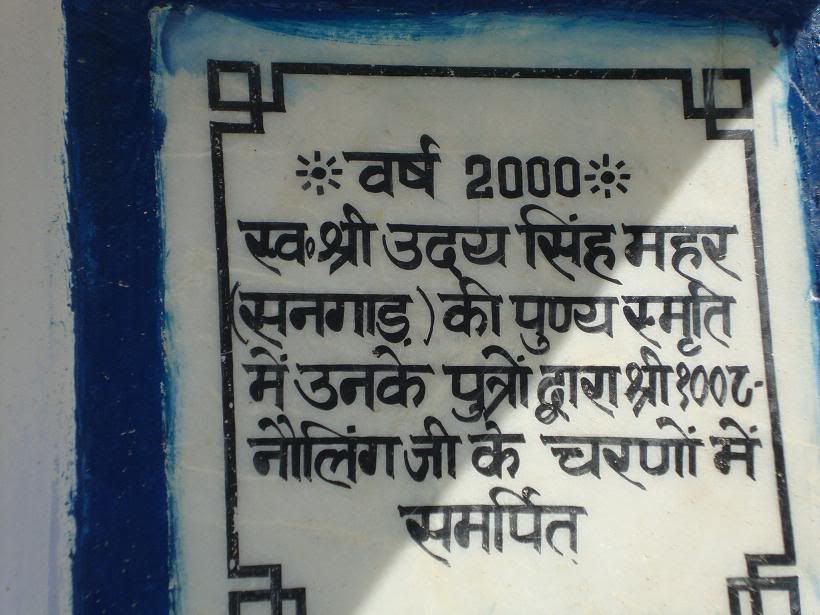 वर्ष 2000
स्व॰ श्री उदय सिंह महर
(सनगाड़) की पुण्य स्मृति
में उनके पुत्रों द्वारा श्री १००८-
नौलिंग जी के चरणों में
समर्पित